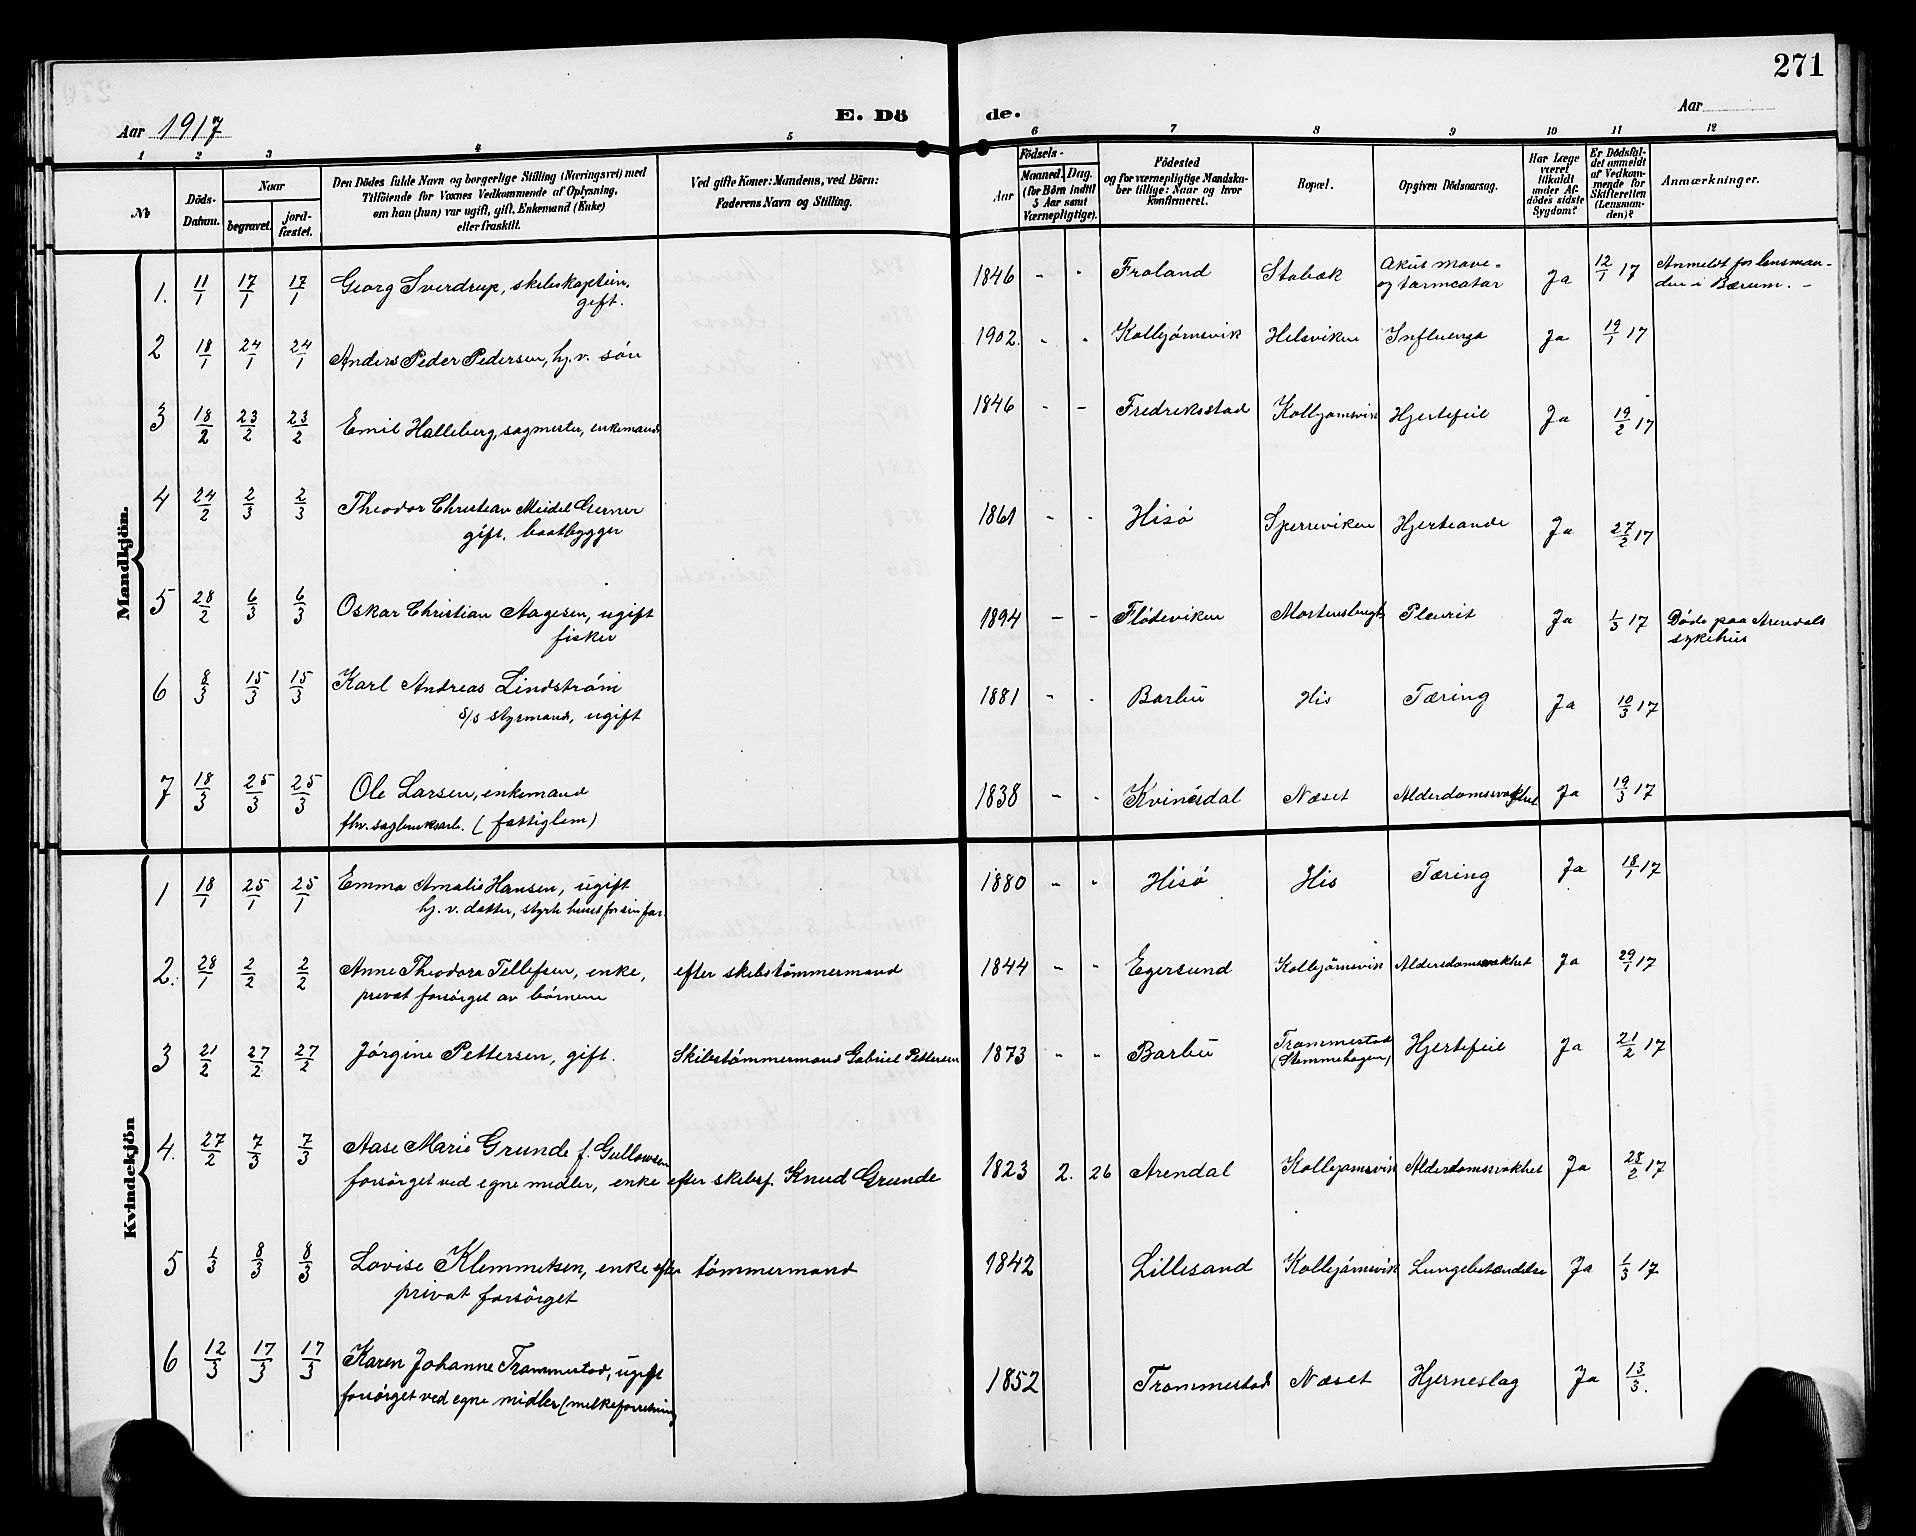 271
Aar 1917
E. Dö
de.
Aar
1 2 3 4 5 6 7 8 9 10 11 12
No
Döds-Datum.
Naar
begravet.
jord-fæstet.
Den Dödes fulde Navn og borgerlige Stilling (Næringsvei) med
Tilföiende for Voxnes Vedkommende af Oplysning,
om han (hun) var ugift, gift, Enkemand (Enke)
eller fraskilt.
Ved gifte Koner: Mandens, ved Börn:
Faderens Navn og Stilling.
Födsels-
Aar
Maaned. Dag.
(for Börn indtil
5 Aar samt
Værnepligtige).
Födested
og for værnepligtige Mandska-
ber tillige: Naar og hvor
konfirmeret.
Bopæl.
Opgiven Dödsaarsag.
Har Læge
været
tilkaldt
under Af-
dödes sidste
Sygdom?
Er Dödsfal-
det anmeldt
af Vedkom-
mende for
Skifteretten
(Lensman-
den)?
Anmærkninger.
Mandkjön.
1. 11/1 17/1 17/1 Georg Sverdrup, skibskaptein, gift. 1846 - - Froland Stabæk Akut mave- og tarmcatar Ja 12/1 17 Anmeldt for lensman-
den i Bærum. -
2 18/1 24/1 24/1 Anders Peder Pedersen, hj. v. søn 1902. - - Kolbjørnsvik Helsviken Influenza Ja 19/1 17
3 18/2 23/2 23/2 Emil Halleberg, sagmester, enkemand 1846 - - Fredriksstad Kolbjørnsvik Hjertefeil Ja 19/2 17
4 24/2 2/3 2/3 Theodor Christian Meidel Gerner
gift. baatbygger 1861 - - Hisø Sperreviken Hjerteonde Ja 27/2 17
5 28/2 6/3 6/3 Oskar Christian Aagesen, ugift
fisker 1894 - - Flødeviken Mortensbugt Pleurit Ja 1/3 17 Døde paa Arendals
sykehus
6 8/3 15/3 15/3 Karl Andreas Lindstrøm
s/s styrmand, ugift 1881 - - Barbu His Tæring Ja 10/3 17
7 18/3 25/3 25/3 Ole Larsen, enkemand
fhv. sagbruksarb. (fattiglem) 1838 - - Kvinesdal Næset Alderdomssvakhet Ja 19/3 17
Kvindekjön
1 18/1 25/1 25/1 Emma Amalie Hansen, ugift
hj. v. datter, styrte huset for sin far. 1880 - - Hisø His Tæring Ja 18/1 17
2. 28/1 2/2 2/2 Anne Theodora Tellefsen, enke, efter skibstømmermand
privat forsørget av børnene 1844 - - Egersund Kolbjørnsvik Alderdomssvakhet Ja 29/1 17
3 21/2 27/2 27/2 Jørgine Pettersen, gift. Skibstømmermand Gabriel Pettersen 1873 - - Barbu Trommestad
(Stemmehagen) Hjertefeil Ja 21/2 17
4. 27/2 7/3 7/3 Aase Marie Grunde f. Gullowsen
forsørget ved egne midler, enke efter skibsf. Knud Grunde 1823 2. 26 Arendal Kolbjørnsvik Alderdomssvakhet Ja 28/2 17
5 1/3 8/3 8/3 Lovise Klemmetsen, enke efter tømmermand
privat forsørget 1842 Lillesand Kolbjørnsvik Lungebetændelse Ja 1/3 17
6 12/3 17/3 17/3 Karen Johanne Trommestad, ugift
forsørget ved egne midler (melkeforretning 1852 Trommestad Næset Hjerneslag Ja 13/3.